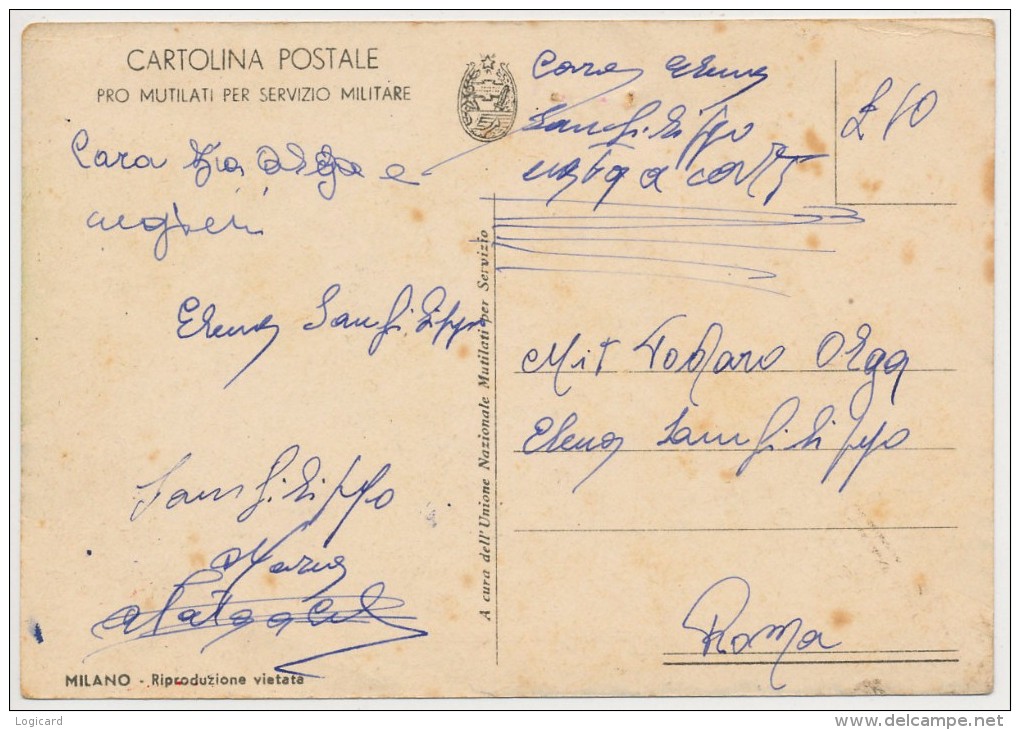 CARTOLINA POSTALE
PRO MUTILATI PER SERVIZIO MILITARE
Cara Zia Olga e
Elena Sanfilippo
Sanfilippo
Maria
MILANO - Riproduzione vietata
A cura dell'Unione Nazionale Mutilati per Servizio
Cara Elena
Sanfilippo
£ 10
Mit Todaro Olga
Elena Sanfilippo
Roma
Logicard
www.delcampe.net